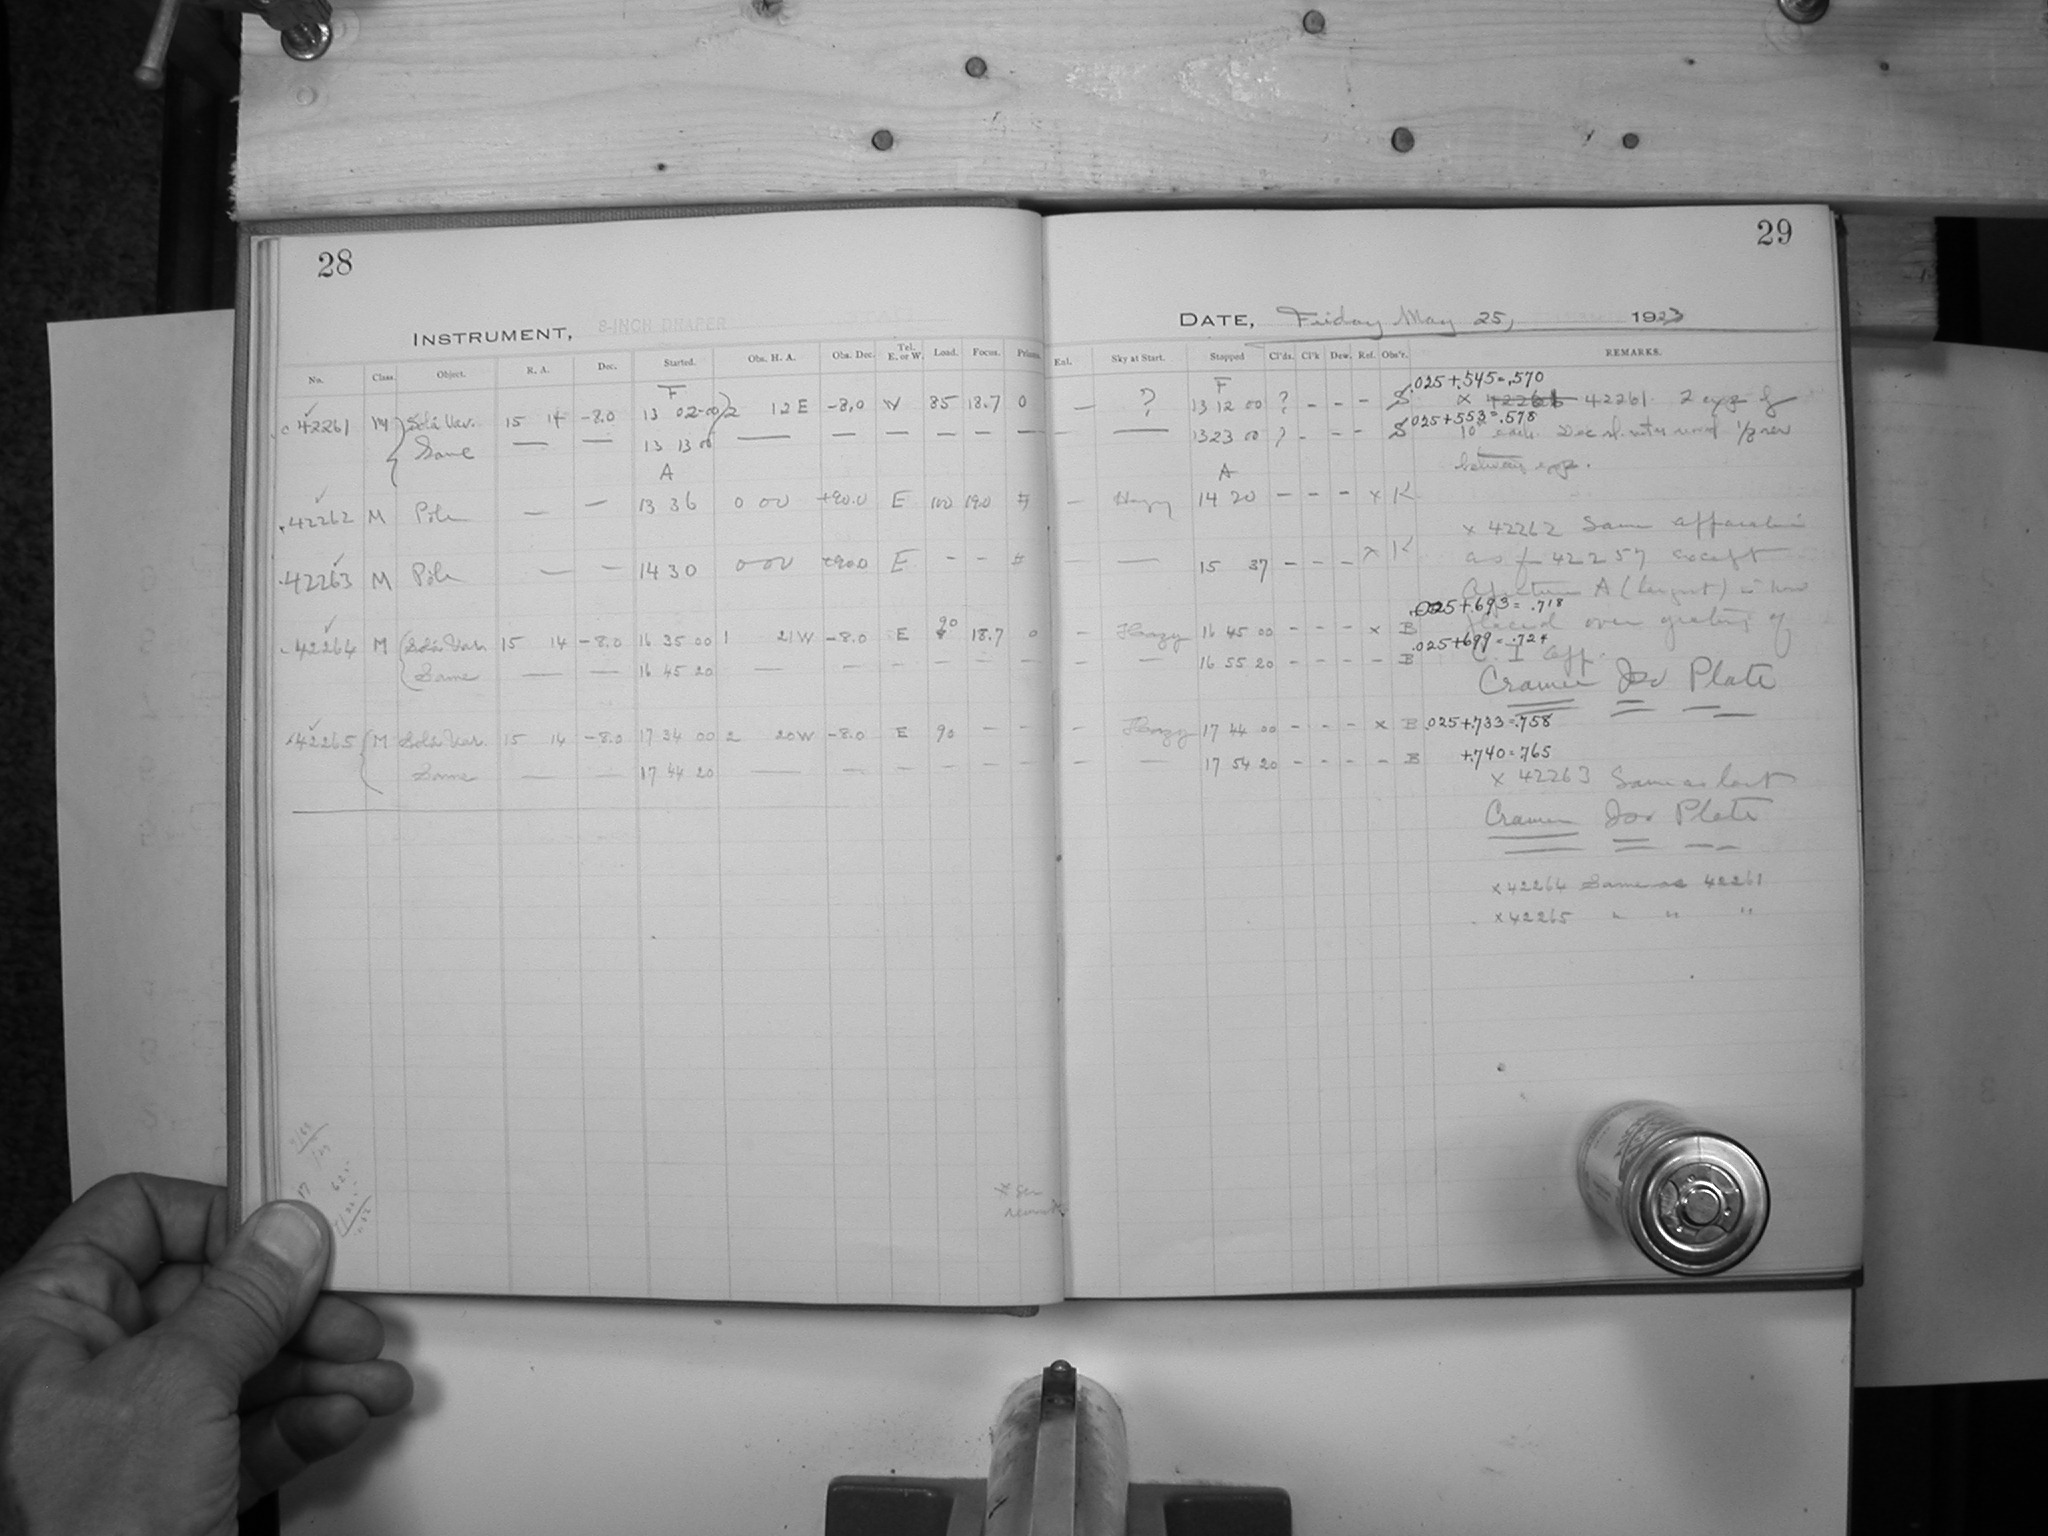 28
INSTRUMENT, 8-INCH DRAPER
No. Class. Object. R. A. Dec. Started. Obs. H. A. Obs. Dec. Tel. E. or W. Load. Focus. Prisms.
F
42261 M Var. 15 14 -8.0 13 02 00 2 12 E -8.0 W 85 18.7 0
Same — — 13 13 00 — — — — — —
A
42262 M Pole — — 13 36 0 00 +90.0 E 100 190
42263 M Pole — — 14 30 0 00 +90.0 E - -
90
42264 M Var. 15 14 -8.0 16 35 00 1 21 W -8.0 E 18.7 0
Same — — 16 45 20 — — — — — —
42265 M Var. 15 14 -8.0 17 34 00 2 20 W -8.0 E 90 - -
Same — — 17 44 20 — — — — — —
* See
remarks
29
DATE, Friday May 25, 1923
Enl. Sky at Start. Stopped Cl'ds. Cl'k Dew. Ref. Obs'r. REMARKS.
F
— ? 13 12 00 ? - - - S
— — 13 23 00 ? - - - S
A
- Hazy 14 20 - - - x K
- — 15 37 - - - x K
- Hazy 16 45 00 - - - x B
- — 16 55 20 - - - - B
- Hazy 17 44 00 - - - x B
- — 17 54 20 - - - - B
.025+.545=.570
x 42261 2 exp of
.025+553=.578
10m each. Dec 1/3 rev
between exp.
x 42262 Same apparatus
as for 42257 except
Aperture A (largest) is now
.025+.693=.718
placed over grating of
.025+699=.724
C. I app.
Cramer Iso Plate
.025+.733=.758
+.740=.765
x 42263 Same as last
Cramer Iso Plate
x 42264 Same as 42261
x 42265 " " "